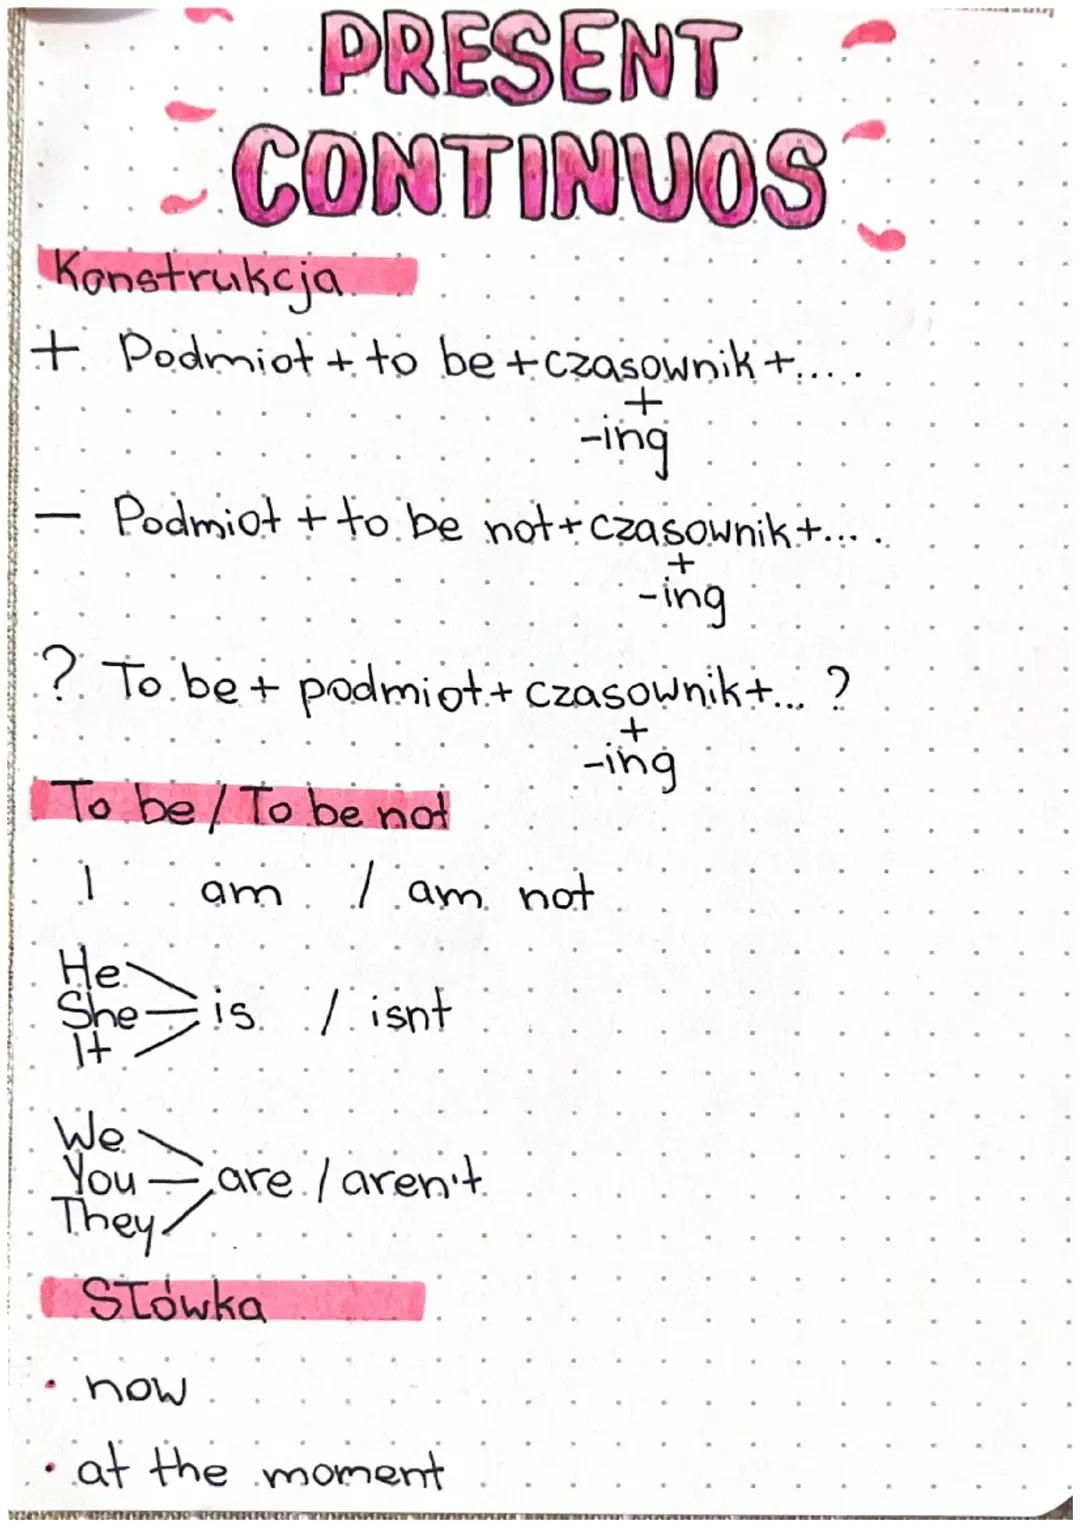 PRESENT
CONTINUOS
Konstrukcja
+ Podmiot + to be + czasownik + .....
+
-ing
— Podmiot + to be not + czasownik + ....
+
-ing
? To be + podmiot + czasownik + ... ?
+
-ing
To be / To be not
I am / am not
He
She is / isnt
It
We
You are / aren't
They
Słówka
• now
• at the moment